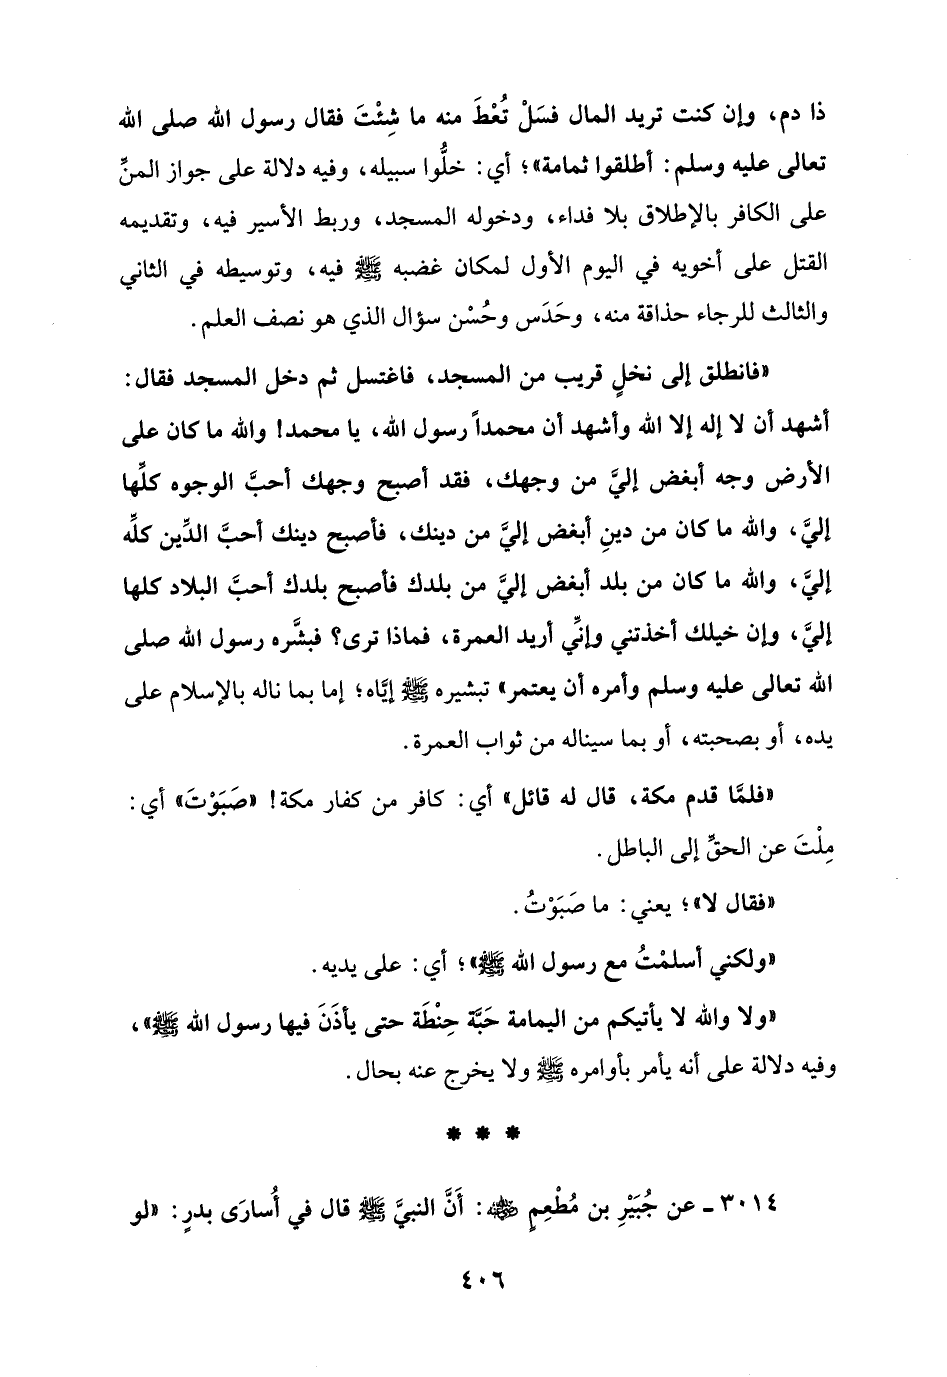 ذا دم، وإن كنت تريد المال فسَلْ تُعْطَ منه ما شِئْتَ فقال رسول الله صلى الله
تعالى عليه وسلم: أطلقوا ثمامة»؛ أي: خلُّوا سبيله، وفيه دلالة على جواز المنِّ
على الكافر بالإطلاق بلا فداء، ودخوله المسجد، وربط الأسير فيه، وتقديمه
القتل على أخويه في اليوم الأول لمكان غضبه ﷺ فيه، وتوسيطه في الثاني
والثالث للرجاء حذاقة منه، وحَدَس وحُسْن سؤال الذي هو نصف العلم.
«فانطلق إلى نخلٍ قريب من المسجد، فاغتسل ثم دخل المسجد فقال:
أشهد أن لا إله إلا الله وأشهد أن محمداً رسول الله، يا محمد! والله ما كان على
الأرض وجه أبغض إليَّ من وجهك، فقد أصبح وجهك أحبَّ الوجوه كلِّها
إليَّ، والله ما كان من دينِ أبغض إليَّ من دينك، فأصبح دينك أحبَّ الدِّين كلِّه
إليَّ، والله ما كان من بلد أبغض إليَّ من بلدك فأصبح بلدك أحبَّ البلاد كلها
إليَّ، وإن خيلك أخذتني وإنِّي أريد العمرة، فماذا ترى؟ فبشَّره رسول الله صلى
الله تعالى عليه وسلم وأمره أن يعتمر» تبشيره ﷺ إيَّاه؛ إما بما ناله بالإسلام على
يده، أو بصحبته، أو بما سيناله من ثواب العمرة.
«فلمَّا قدم مكة، قال له قائل» أي: كافر من كفار مكة! «صَبَوْتَ» أي:
مِلْتَ عن الحقِّ إلى الباطل.
«فقال لا»؛ يعني: ما صَبَوْتُ.
«ولكني أسلمْتُ مع رسول الله ﷺ»؛ أي: على يديه.
«ولا والله لا يأتيكم من اليمامة حَبَّة حِنْطَة حتى يأذَنَ فيها رسول الله ﷺ»،
وفيه دلالة على أنه يأمر بأوامره ﷺ ولا يخرج عنه بحال.
* * *
٣٠١٤ - عن جُبَيْرِ بن مُطْعِمٍ ﷺ: أَنَّ النبيَّ ﷺ قال في أُسارَى بدرٍ: «لو
٤٠٦